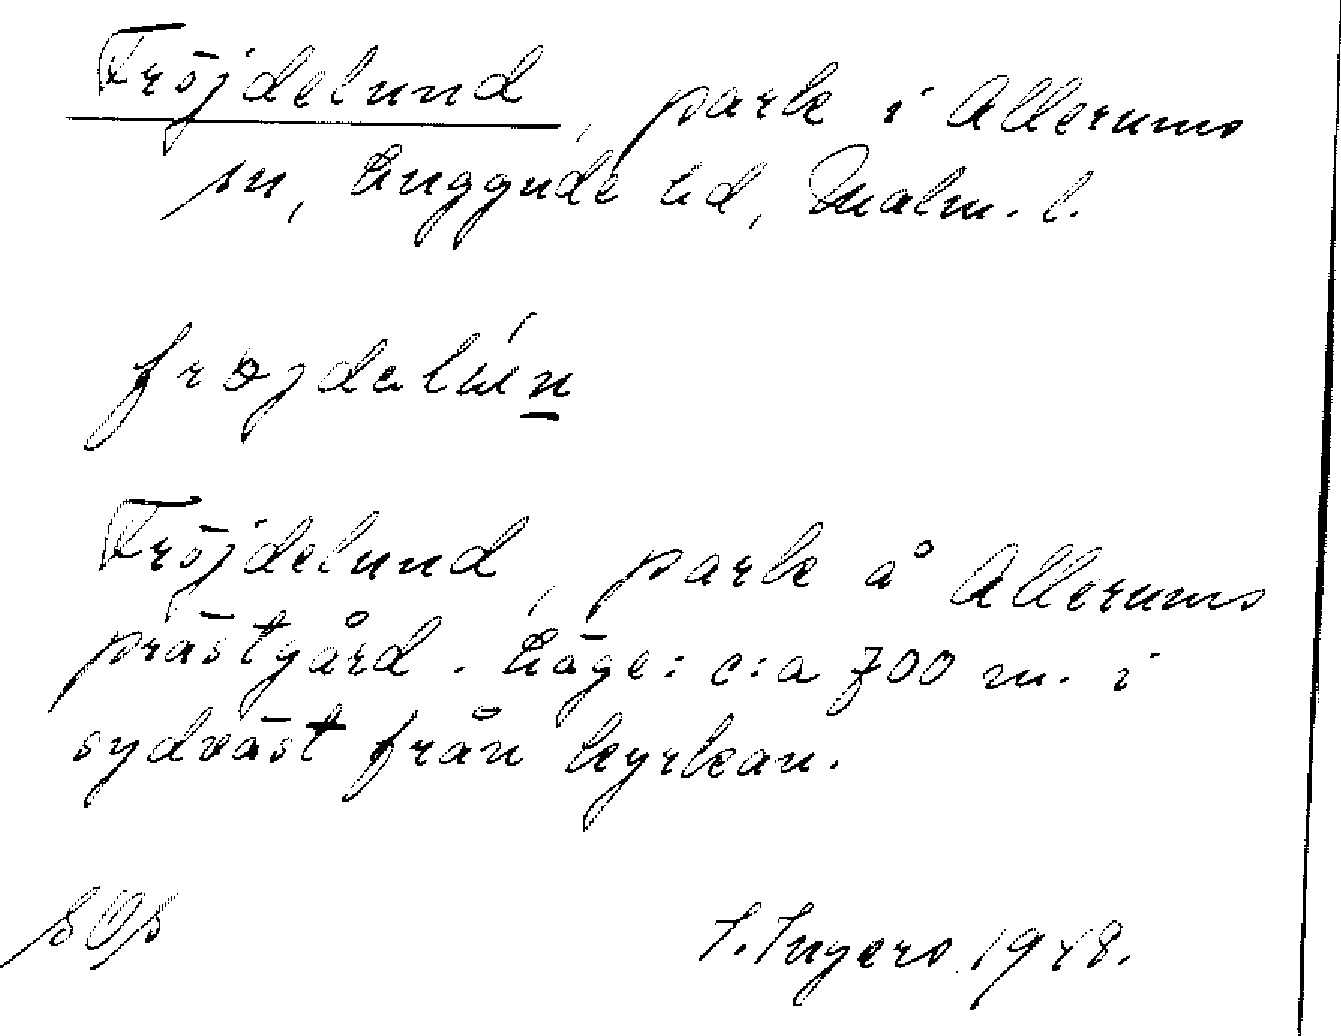 Fröjdelund, park i Allerums
sn, Luggude hd, Malm. l.
Fröjdelund, park å Allerums
prästgård. Läge: c:a 700 m. i
sydväst från kyrkan.
I. Ingers 1948.